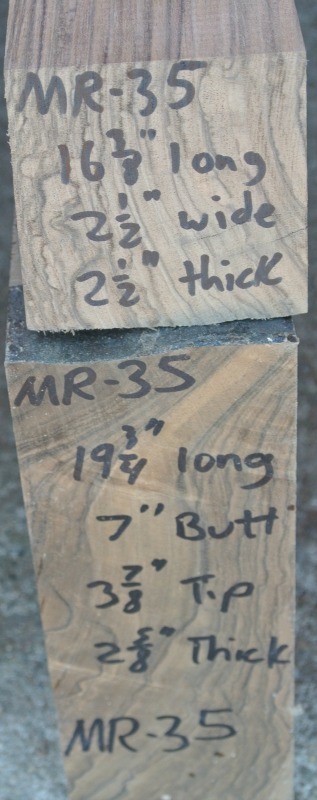 MR-35
16 3/8" long
2 1/2" wide
2 1/2" thick
MR-35
19 3/4" long
7" Butt
3 7/8" Tip
2 5/8" Thick
MR-35